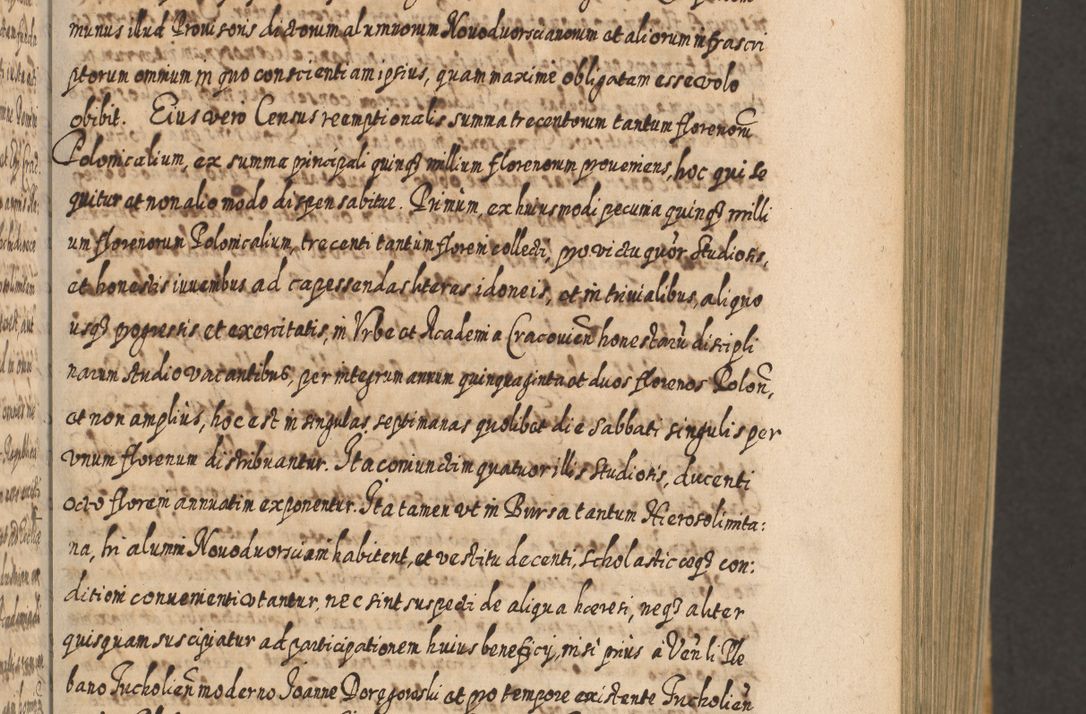 munus illud Provisoris dictorum alumnorum Novoduorscianorum et aliorum infrascri
ptorum omnium in quo conscientiam ipsius, quam maxime obligatam esse volo
obibit. Eius vero Census reemptionalis summa trecentorum tantum florenorũ
Polonicalium, ex summa principali quinq3 millium florenorum proveniens, hoc qui se
quitur et non alio modo dispensabitur. Primum, ex huiusmodi pecunia quinq3 milli
um florenorum Polonicalium, trecenti tantum floreni collecti, pro victu quõr studiosis,
et honestis iuvenibus ad capessendas literas idoneis, et in trivialibus, aliquo
usq3 progressis et exercitatis, in Vrbe et Academia Cracovieñ honestarũ discipli
narum studio vacantibus, per integrum annum quinquaginta et duos florenos Poloñ,
et non amplius, hoc est in singulas septimanas quolibet die sabbati singulis per
vnum florenum distribuantur. Ita coniunctim quatuor illis studiosis, ducenti
octo floreni annuatim exponentur. Ita tamen vt in Bursa tantum Hierosolimita:
na, hi alumni Novoduorsciani habitent, et vestitu decenti, scholasticoq3 con:
ditioni convenienti vtantur, nec sint suspecti de aliqua hæresi, neq3 aliter
quisquam suscipiatur ad participationem huius beneficij, nisi prius a Veñli Ple
bano Tucholieñ moderno Joanne Doregowski et pro tempore existente Tucholieñ